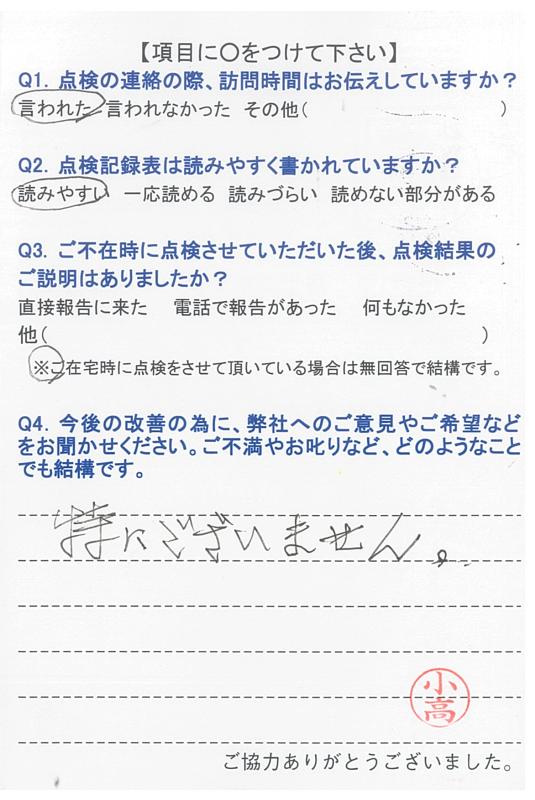 【項目に〇をつけて下さい】
Q1. 点検の連絡の際、訪問時間はお伝えしていますか？
言われた 言われなかった その他( )
Q2. 点検記録表は読みやすく書かれていますか？
読みやすい 一応読める 読みづらい 読めない部分がある
Q3. ご不在時に点検させていただいた後、点検結果の
ご説明はありましたか？
直接報告に来た 電話で報告があった 何もなかった
他( )
※ご在宅時に点検をさせて頂いている場合は無回答で結構です。
Q4. 今後の改善の為に、弊社へのご意見やご希望など
をお聞かせください。ご不満やお叱りなど、どのようなこと
でも結構です。
特にございません。
小高
ご協力ありがとうございました。